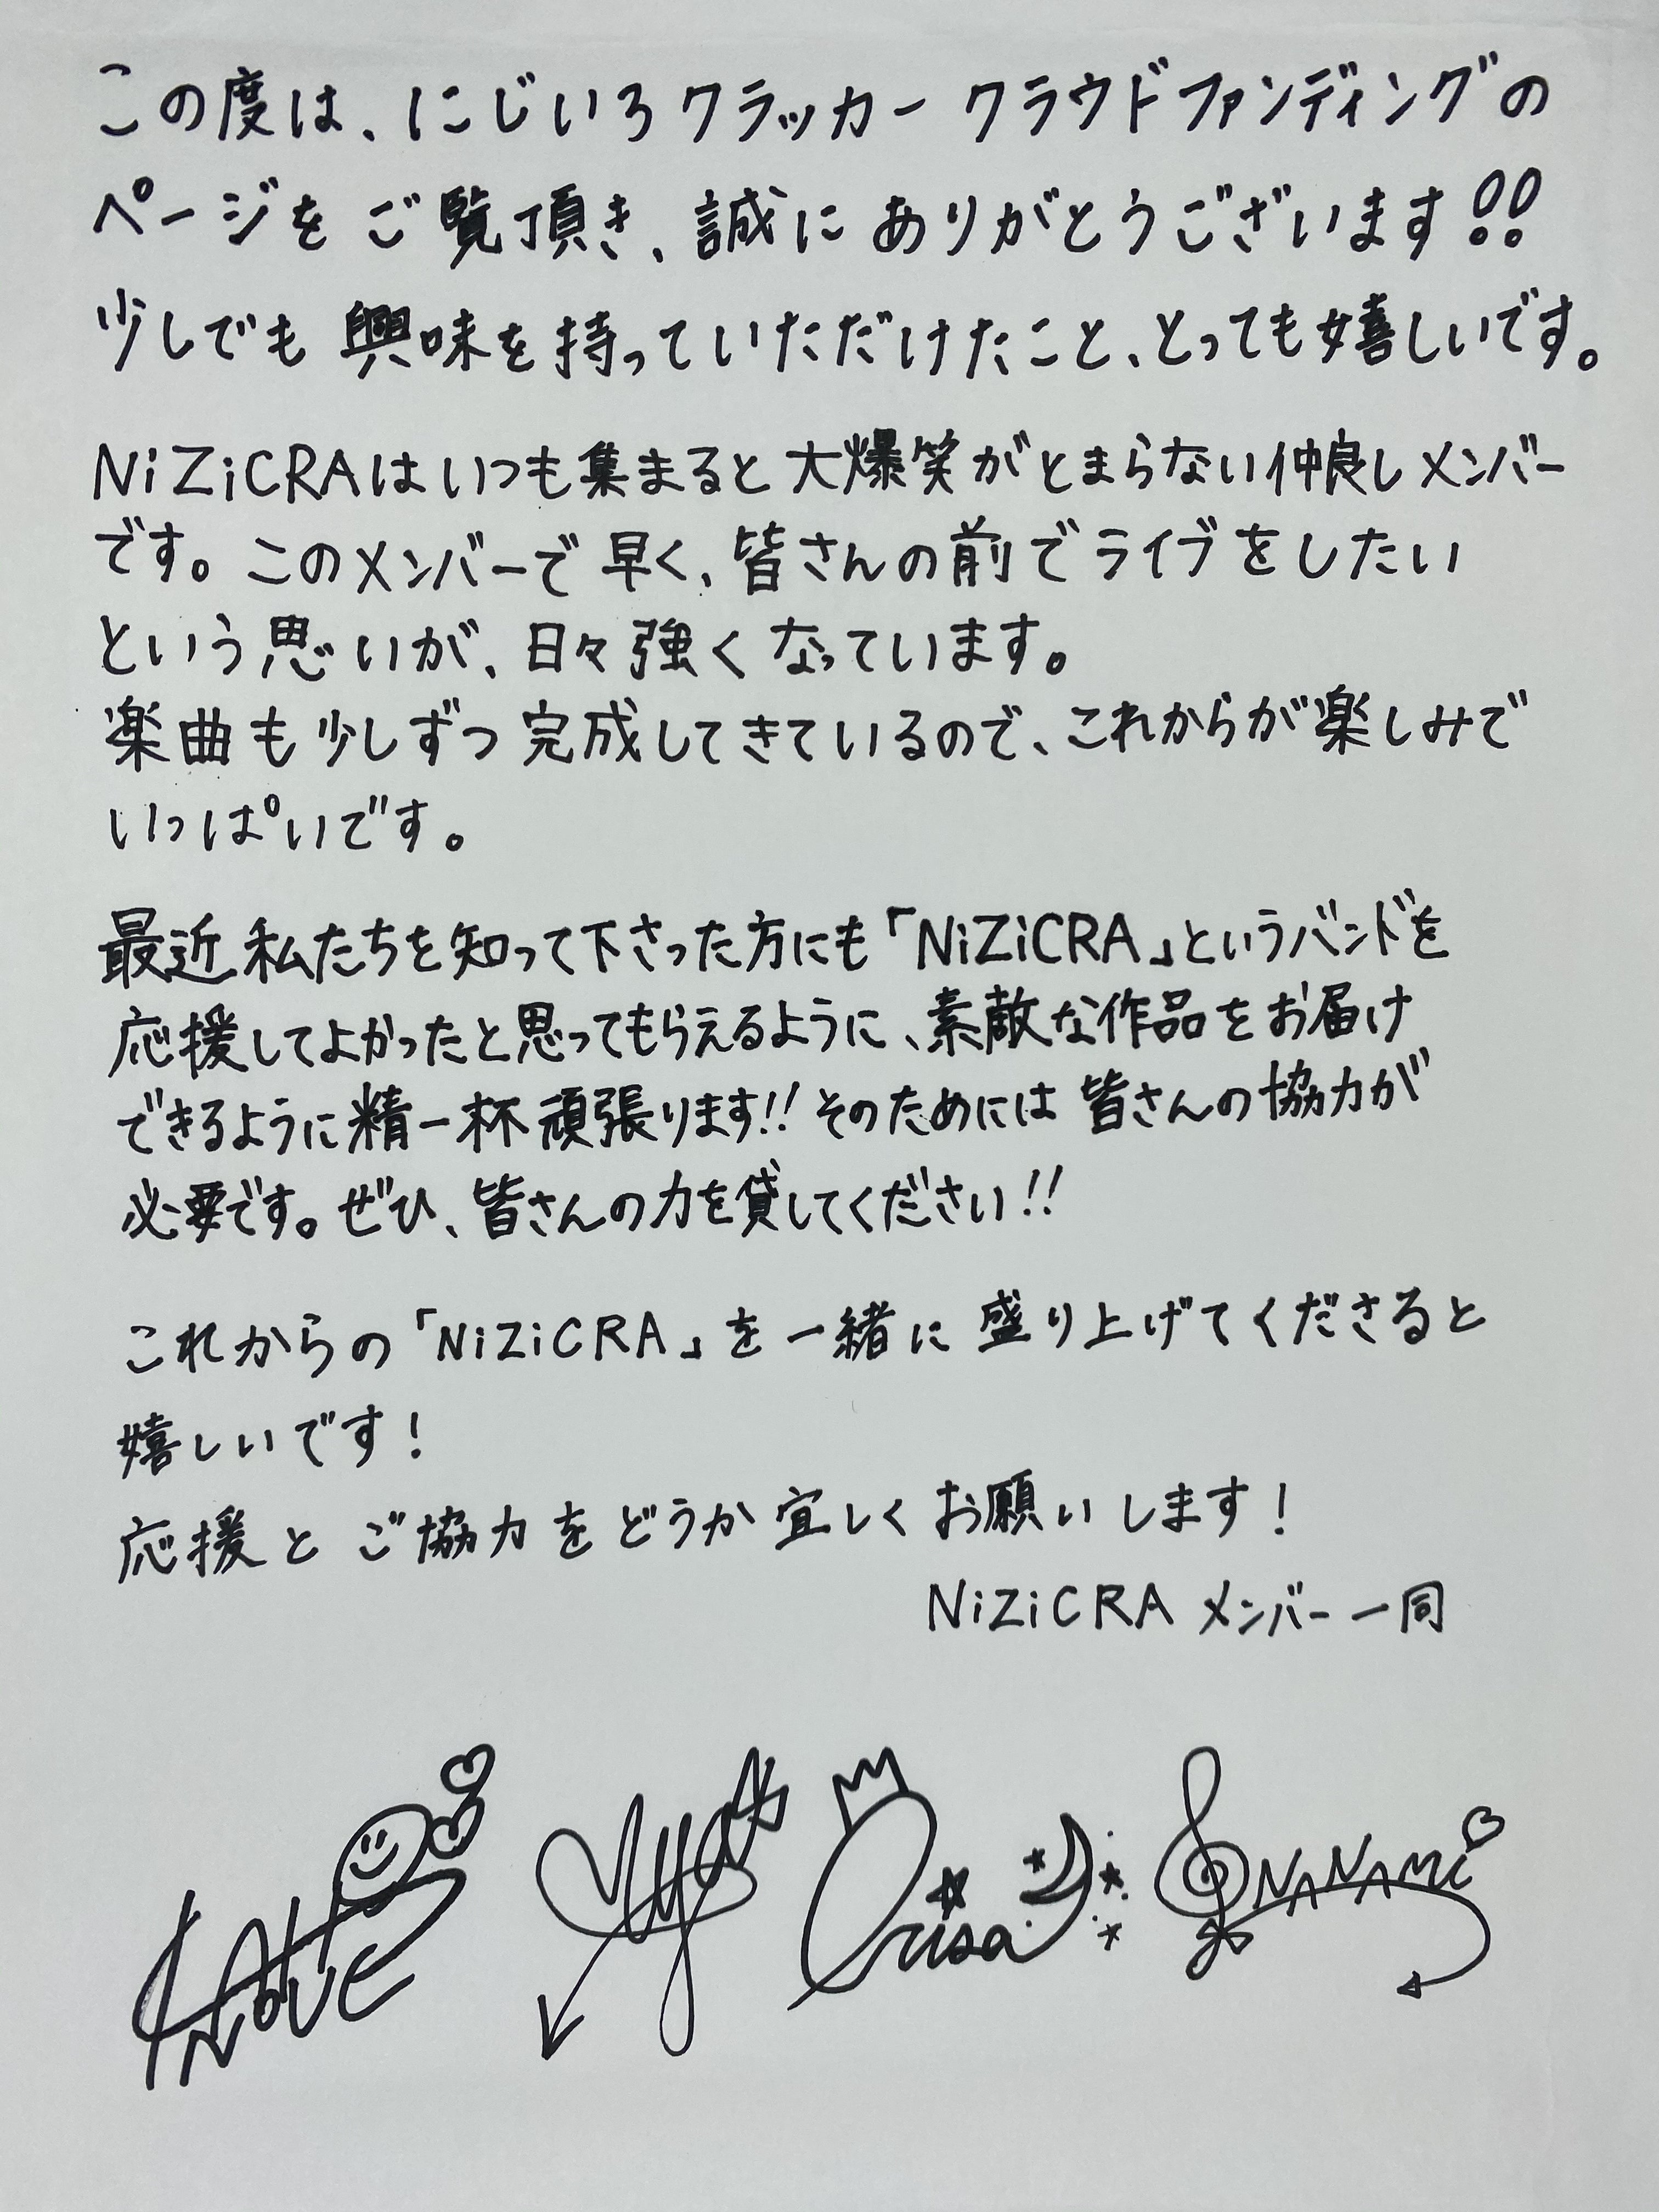 この度は、にじいろクラッカー クラウドファンディングの
ページをご覧頂き、誠にありがとうございます!!
少しでも興味を持っていただけたこと、とっても嬉しいです。
NiZiCRAはいつも集まると大爆笑がとまらない仲良しメンバー
です。このメンバーで早く、皆さんの前でライブをしたい
という思いが、日々強くなっています。
楽曲も少しずつ完成してきているので、これからが楽しみで
いっぱいです。
最近私たちを知って下さった方にも「NiZiCRA」というバンドを
応援してよかったと思ってもらえるように、素敵な作品をお届け
できるように精一杯頑張ります!!そのためには皆さんの協力が
必要です。ぜひ、皆さんの力を貸してください!!
これからの「NiZiCRA」を一緒に盛り上げてくださると
嬉しいです!
応援とご協力をどうか宜しくお願いします!
NiZiCRA メンバー一同
NANAMi